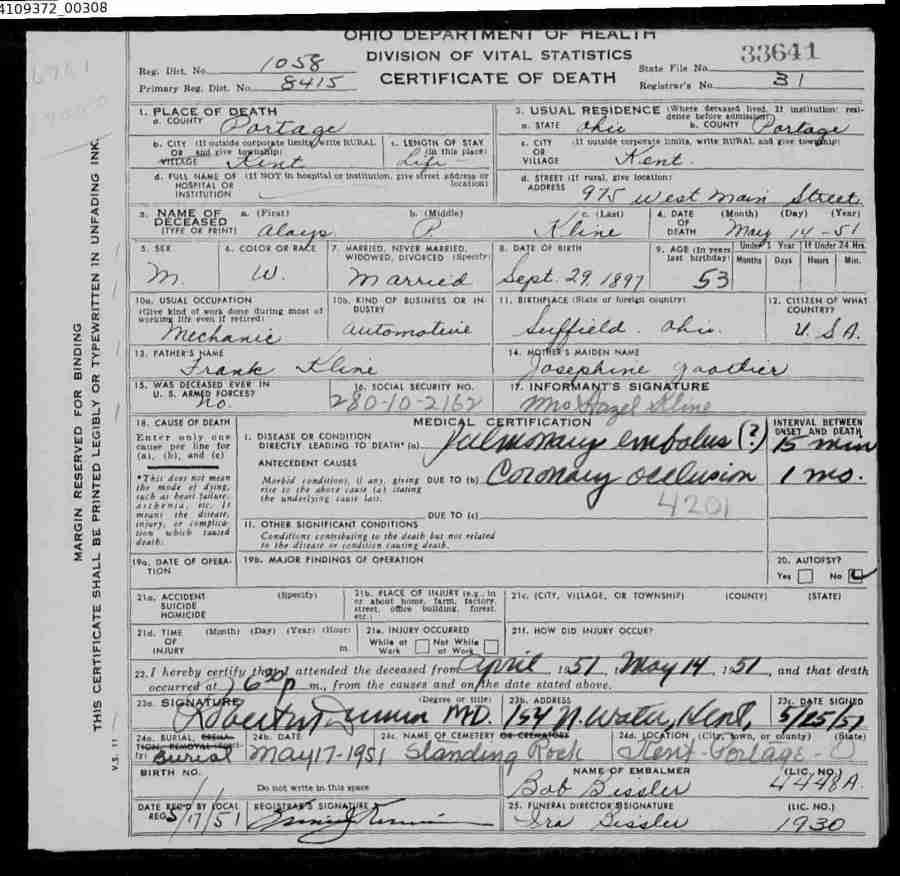 4109372_00308
OHIO DEPARTMENT OF HEALTH
DIVISION OF VITAL STATISTICS
CERTIFICATE OF DEATH
Reg. Dist. No. 1058
Primary Reg. Dist. No. 8415
State File No. 33641
Registrar's No. 31
MARGIN RESERVED FOR BINDING
THIS CERTIFICATE SHALL BE PRINTED LEGIBLY OR TYPEWRITTEN IN UNFADING INK.
1. PLACE OF DEATH
a. COUNTY Portage
2. USUAL RESIDENCE (Where deceased lived. If institution: residence before admission)
a. STATE Ohio b. COUNTY Portage
b. CITY (If outside corporate limits, write RURAL
OR and give township)
VILLAGE Kent
c. LENGTH OF STAY
(in this place)
Life
c. CITY (If outside corporate limits, write RURAL and give township)
OR
VILLAGE Kent.
d. FULL NAME OF (If NOT in hospital or institution, give street address or location)
HOSPITAL OR
INSTITUTION
d. STREET (If rural, give location)
ADDRESS 975 West Main Street
3. NAME OF DECEASED
(TYPE OR PRINT)
a. (First) Aloys b. (Middle) P. c. (Last) Kline
4. DATE OF DEATH (Month) (Day) (Year)
May 14-51
5. SEX
M.
6. COLOR OR RACE
W.
7. MARRIED, NEVER MARRIED, WIDOWED, DIVORCED (Specify)
Married
8. DATE OF BIRTH
Sept. 29, 1897
9. AGE (In years last birthday)
53
Under 1 Year If Under 24 Hrs.
Months Days Hours Min.
10a. USUAL OCCUPATION
(Give kind of work done during most of working life even if retired)
Mechanic
10b. KIND OF BUSINESS OR INDUSTRY
Automotive
11. BIRTHPLACE (State or foreign country)
Suffield. Ohio.
12. CITIZEN OF WHAT COUNTRY?
U.S.A.
13. FATHER'S NAME
Frank Kline
14. MOTHER'S MAIDEN NAME
Josephine
15. WAS DECEASED EVER IN U. S. ARMED FORCES?
No.
16. SOCIAL SECURITY NO.
280-10-2162
17. INFORMANT'S SIGNATURE
Mrs Hazel Kline
18. CAUSE OF DEATH
Enter only one cause per line for (a), (b), and (c)
*This does not mean the mode of dying, such as heart failure, asthenia, etc. It means the disease, injury, or complication which caused death.
MEDICAL CERTIFICATION
I. DISEASE OR CONDITION
DIRECTLY LEADING TO DEATH* (a) Pulmonary embolus (?)
INTERVAL BETWEEN ONSET AND DEATH
15 min
ANTECEDENT CAUSES
Morbid conditions, if any, giving rise to the above cause (a) stating the underlying cause last.
DUE TO (b) Coronary occlusion 1 mo.
4201
DUE TO (c)
II. OTHER SIGNIFICANT CONDITIONS
Conditions contributing to the death but not related to the disease or condition causing death.
19a. DATE OF OPERATION
19b. MAJOR FINDINGS OF OPERATION
20. AUTOPSY?
Yes No
21a. ACCIDENT (Specify)
SUICIDE
HOMICIDE
21b. PLACE OF INJURY (e.g., in or about home, farm, factory, street, office building, forest, etc.)
21c. (CITY, VILLAGE, OR TOWNSHIP) (COUNTY) (STATE)
21d. TIME (Month) (Day) (Year) (Hour)
OF
INJURY m.
21e. INJURY OCCURRED
While at Work Not While at Work
21f. HOW DID INJURY OCCUR?
22. I hereby certify that I attended the deceased from April 1951, May 14 1951, and that death
occurred at 7 630 p m., from the causes and on the date stated above.
23a. SIGNATURE (Degree or title)
M.D.
23b. ADDRESS
154 N. Water, Kent,
23c. DATE SIGNED
5/25/51
24a. BURIAL, CREMATION, REMOVAL (Specify)
Burial
24b. DATE
May 17-1951
24c. NAME OF CEMETERY OR CREMATORY
Standing Rock
24d. LOCATION (City, town, or county) (State)
Kent-Portage-O
V.S. 11
BIRTH NO.
Do not write in this space
NAME OF EMBALMER (LIC. NO.)
Bob Bissler 4448A.
DATE REC'D BY LOCAL REG.
5/17/51
REGISTRAR'S SIGNATURE
25. FUNERAL DIRECTOR'S SIGNATURE (LIC. NO.)
Ira Bissler 1930